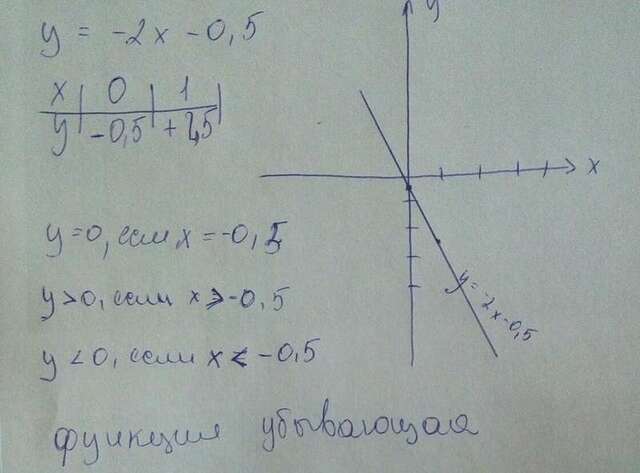 y = -2x - 0,5
x | 0 | 1 |
y | -0,5 | + 2,5
y=0, если x = -0,5
y>0, если x > -0,5
y<0, если x < -0,5
функция убывающая
y
x
y=-2x-0,5